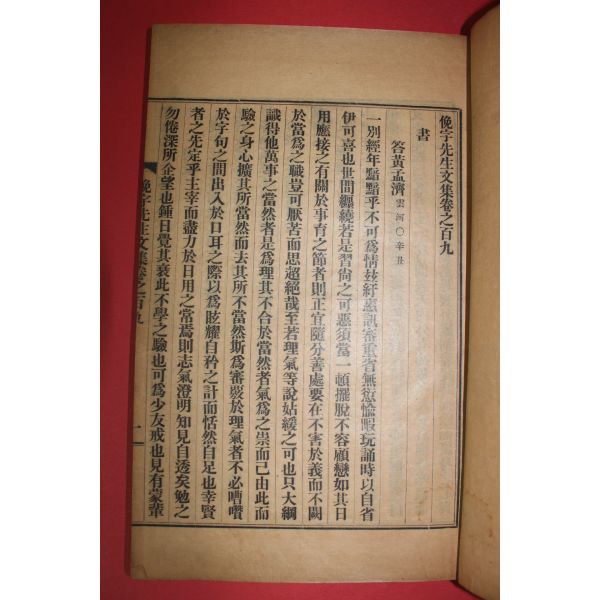 俛宇先生文集卷之百九
書
答黃孟濟 雲河○辛丑
一別經年黯黯乎不可爲情玆紆惠訊審重省無愆愉暇玩誦時以自省
伊可喜也世間纏繞若是習尙之可惡須當一頓擺脫不容顧戀如其日
用應接之有關於事育之節者則正宜隨分善處要在不害於義而不闕
於當爲之職豈可厭苦而思超絕哉至若理氣等說姑緩之可也只大綱
識得他萬事之當然者是爲理其不合於當然者氣爲之祟而已由此而
驗之身心擴其所當然而去其所不當然斯爲審嚴於理氣者不必嘈囋
於字句之間出入於口耳之際以爲眩耀自矜之計而恬然自足也幸賢
者之先定乎主宰而盡力於日用之常焉則志氣澄明知見自透矣勉之
勿倦深所企望也鍾日覺其衰此不學之驗也可爲少友戒也見有蒙輩
俛宇先生文集卷之百九 一